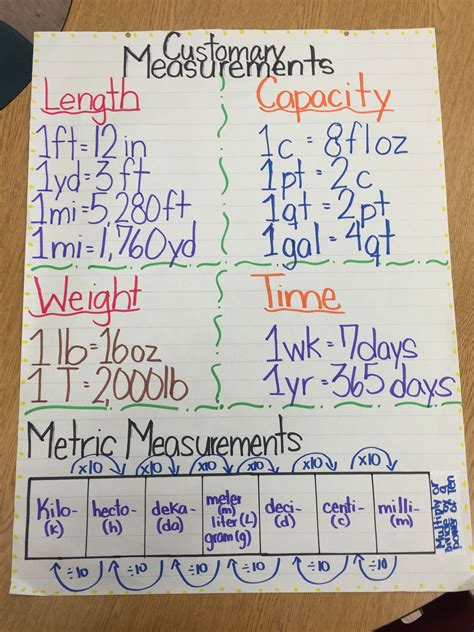 Customary
Measurements
Length
1ft=12in
1yd=3ft
1mi=5,280ft
1mi=1,760yd
Capacity
1c=8floz
1pt=2c
1qt=2pt
1gal=4qt
Weight
1lb=16oz
1T=2,000lb
Time
1wk=7days
1yr=365 days
Metric Measurements
x10 x10 x10 x10 x10 x10
Kilo-
(k)
hecto-
(h)
deka-
(da)
meter
(m)
liter(L)
gram(g)
deci-
(d)
centi-
(c)
milli-
(m)
÷10 ÷10 ÷10 ÷10 ÷10 ÷10
Multiply or
divide by a
power of Ten